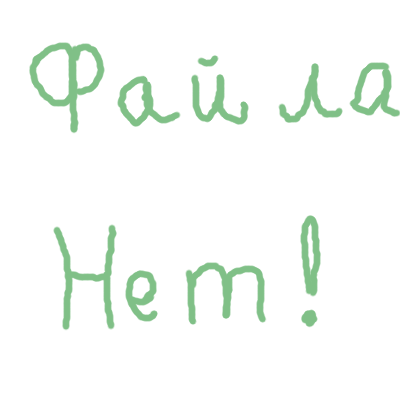 Файла
Нет!